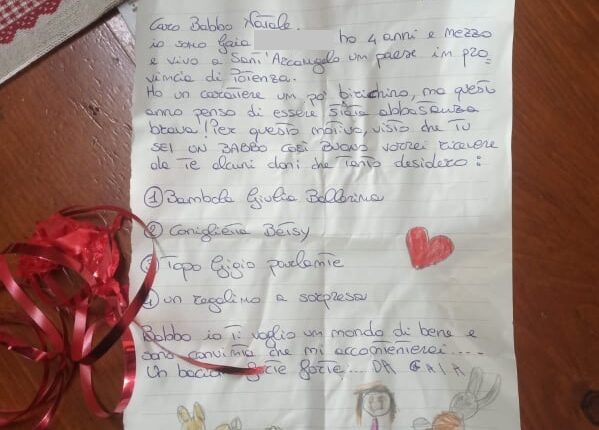 Caro Babbo Natale.
io sono Gaia ho 4 anni e mezzo
e vivo a Sant'Arcangelo un paese in pro
vincia di Potenza.
Ho un carattere un po' birichino, ma quest'
anno penso di essere stata abbastanza
brava! Per questo motivo, visto che TU
SEI UN BABBO COSÌ BUONO vorrei ricevere
da Te alcuni doni che tanto desidero:
① Bambola Giulia Ballerina
② Coniglietta Betsy
③ Topo Gigio parlante
④ un regalino a sorpresa
Babbo io Ti voglio un mondo di bene e
sono convinta che mi accontenterai....
Un bacio forte forte... DA GAIA